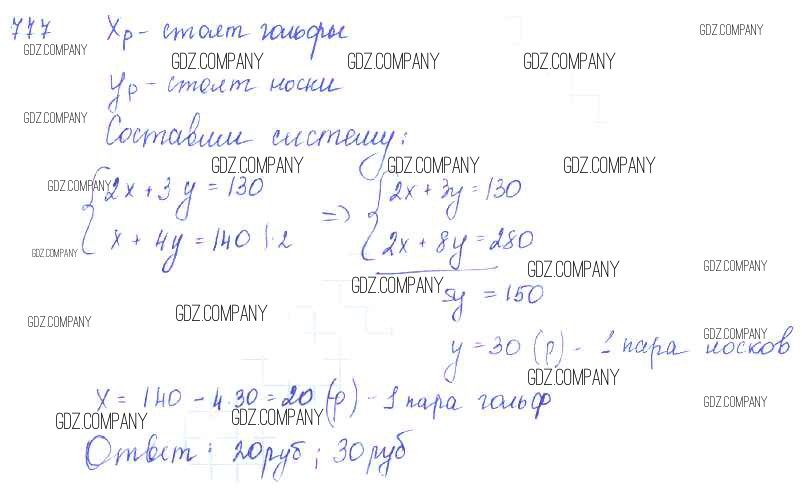 777 Xр - стоят гольфы
GDZ.COMPANY GDZ.COMPANY
GDZ.COMPANY GDZ.COMPANY GDZ.COMPANY
Ур - стоят носки
GDZ.COMPANY
Составим систему:
GDZ.COMPANY GDZ.COMPANY GDZ.COMPANY
GDZ.COMPANY
2x + 3y = 130 2x + 3y = 130
x + 4y = 140 |·2 => 2x + 8y = 280
GDZ.COMPANY
GDZ.COMPANY GDZ.COMPANY
GDZ.COMPANY 5y = 150
GDZ.COMPANY GDZ.COMPANY
GDZ.COMPANY
y = 30 (р) - 1 пара носков
GDZ.COMPANY
x = 140 - 4·30 = 20 (р) - 1 пара гольф
GDZ.COMPANY
GDZ.COMPANY GDZ.COMPANY
Ответ: 20руб; 30руб